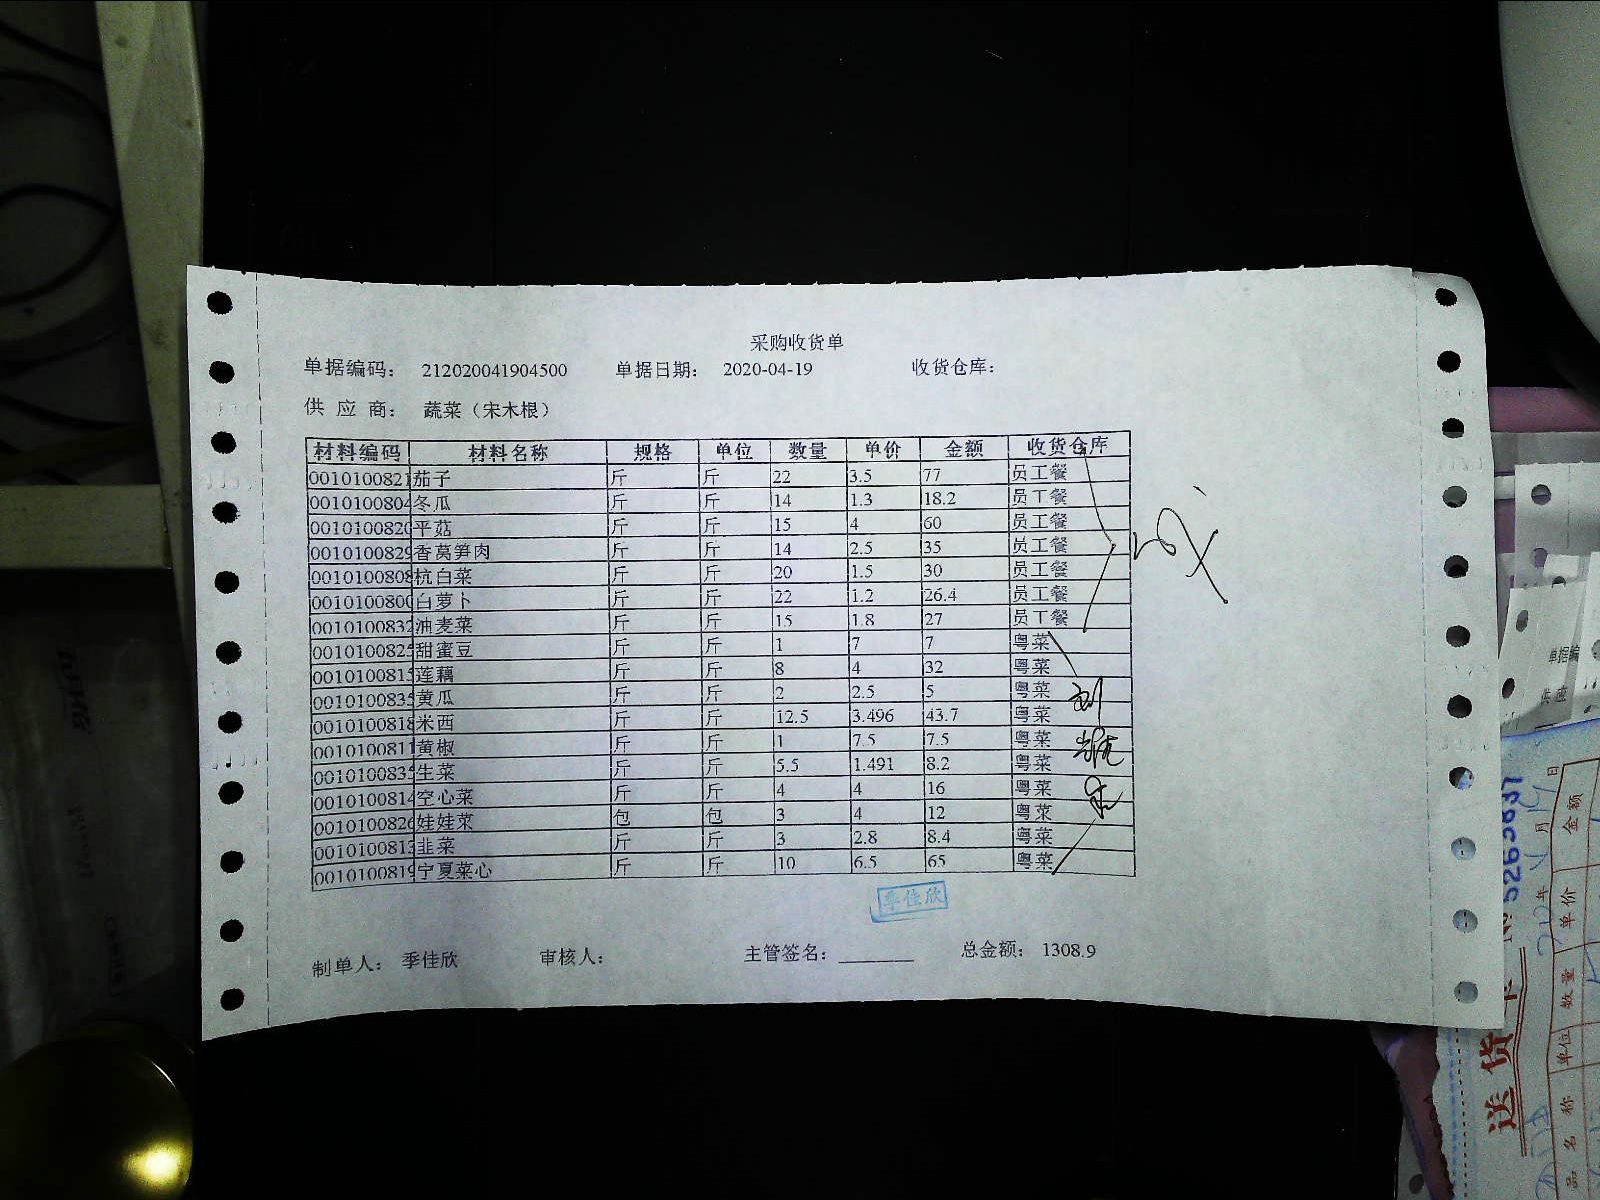 采购收货单
单据编码: 212020041904500 单据日期: 2020-04-19 收货仓库:
供 应 商: 蔬菜（宋木根）
材料编码 材料名称 规格 单位 数量 单价 金额 收货仓库
0010100821 茄子 斤 斤 22 3.5 77 员工餐
001010080 冬瓜 斤 斤 14 1.3 18.2 员工餐
001010082 平菇 斤 斤 15 4 60 员工餐
0010100829 香莴笋肉 斤 斤 14 2.5 35 员工餐
001010080 杭白菜 斤 斤 20 1.5 30 员工餐
001010080 白萝卜 斤 斤 22 1.2 26.4 员工餐
001010083 油麦菜 斤 斤 15 1.8 27 员工餐
001010082 甜蜜豆 斤 斤 1 7 7 粤菜
001010081 莲藕 斤 斤 8 4 32 粤菜
001010083 黄瓜 斤 斤 2 2.5 5 粤菜
001010081 米西 斤 斤 12.5 3.496 43.7 粤菜
0010100811 黄椒 斤 斤 1 7.5 7.5 粤菜
001010083 生菜 斤 斤 5.5 1.491 8.2 粤菜
001010081 空心菜 斤 斤 4 4 16 粤菜
001010082 娃娃菜 包 包 3 4 12 粤菜
001010081 韭菜 斤 斤 3 2.8 8.4 粤菜
001010081 宁夏菜心 斤 斤 10 6.5 65 粤菜
季佳欣
制单人: 季佳欣 审核人: 主管签名: ________ 总金额: 1308.9
单据编
供 应
5263637
送 货
品 名 称 单位 数量 单价 金额
年 月 日